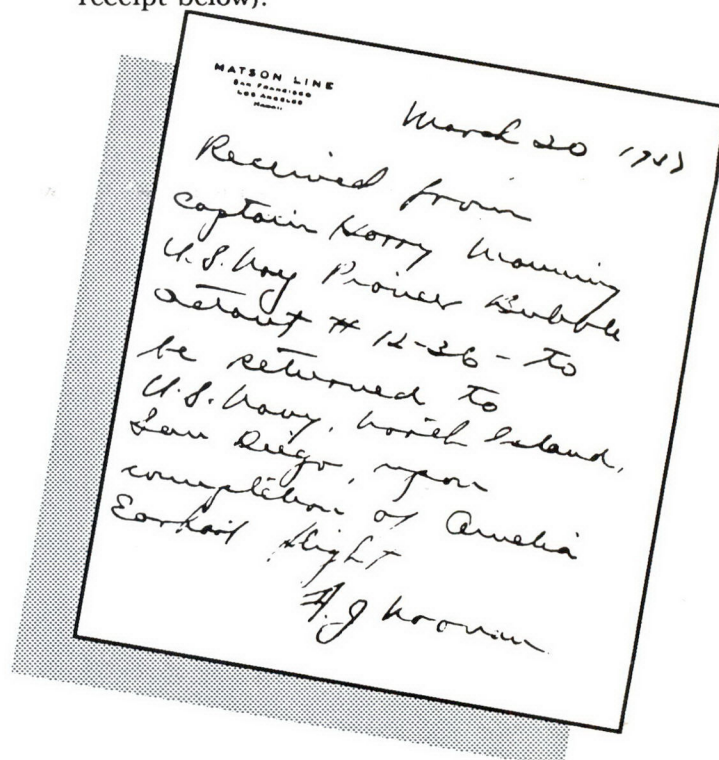 receipt below).
MATSON LINE
SAN FRANCISCO
LOS ANGELES
HAWAII
March 20 1937
Received from
Captain Harry Manning
U.S. Navy Pioneer Bubble
Octant # 12-36 - to
be returned to
U.S. Navy, North Island,
San Diego, upon
completion of Amelia
Earhart flight
F. J. Noonan